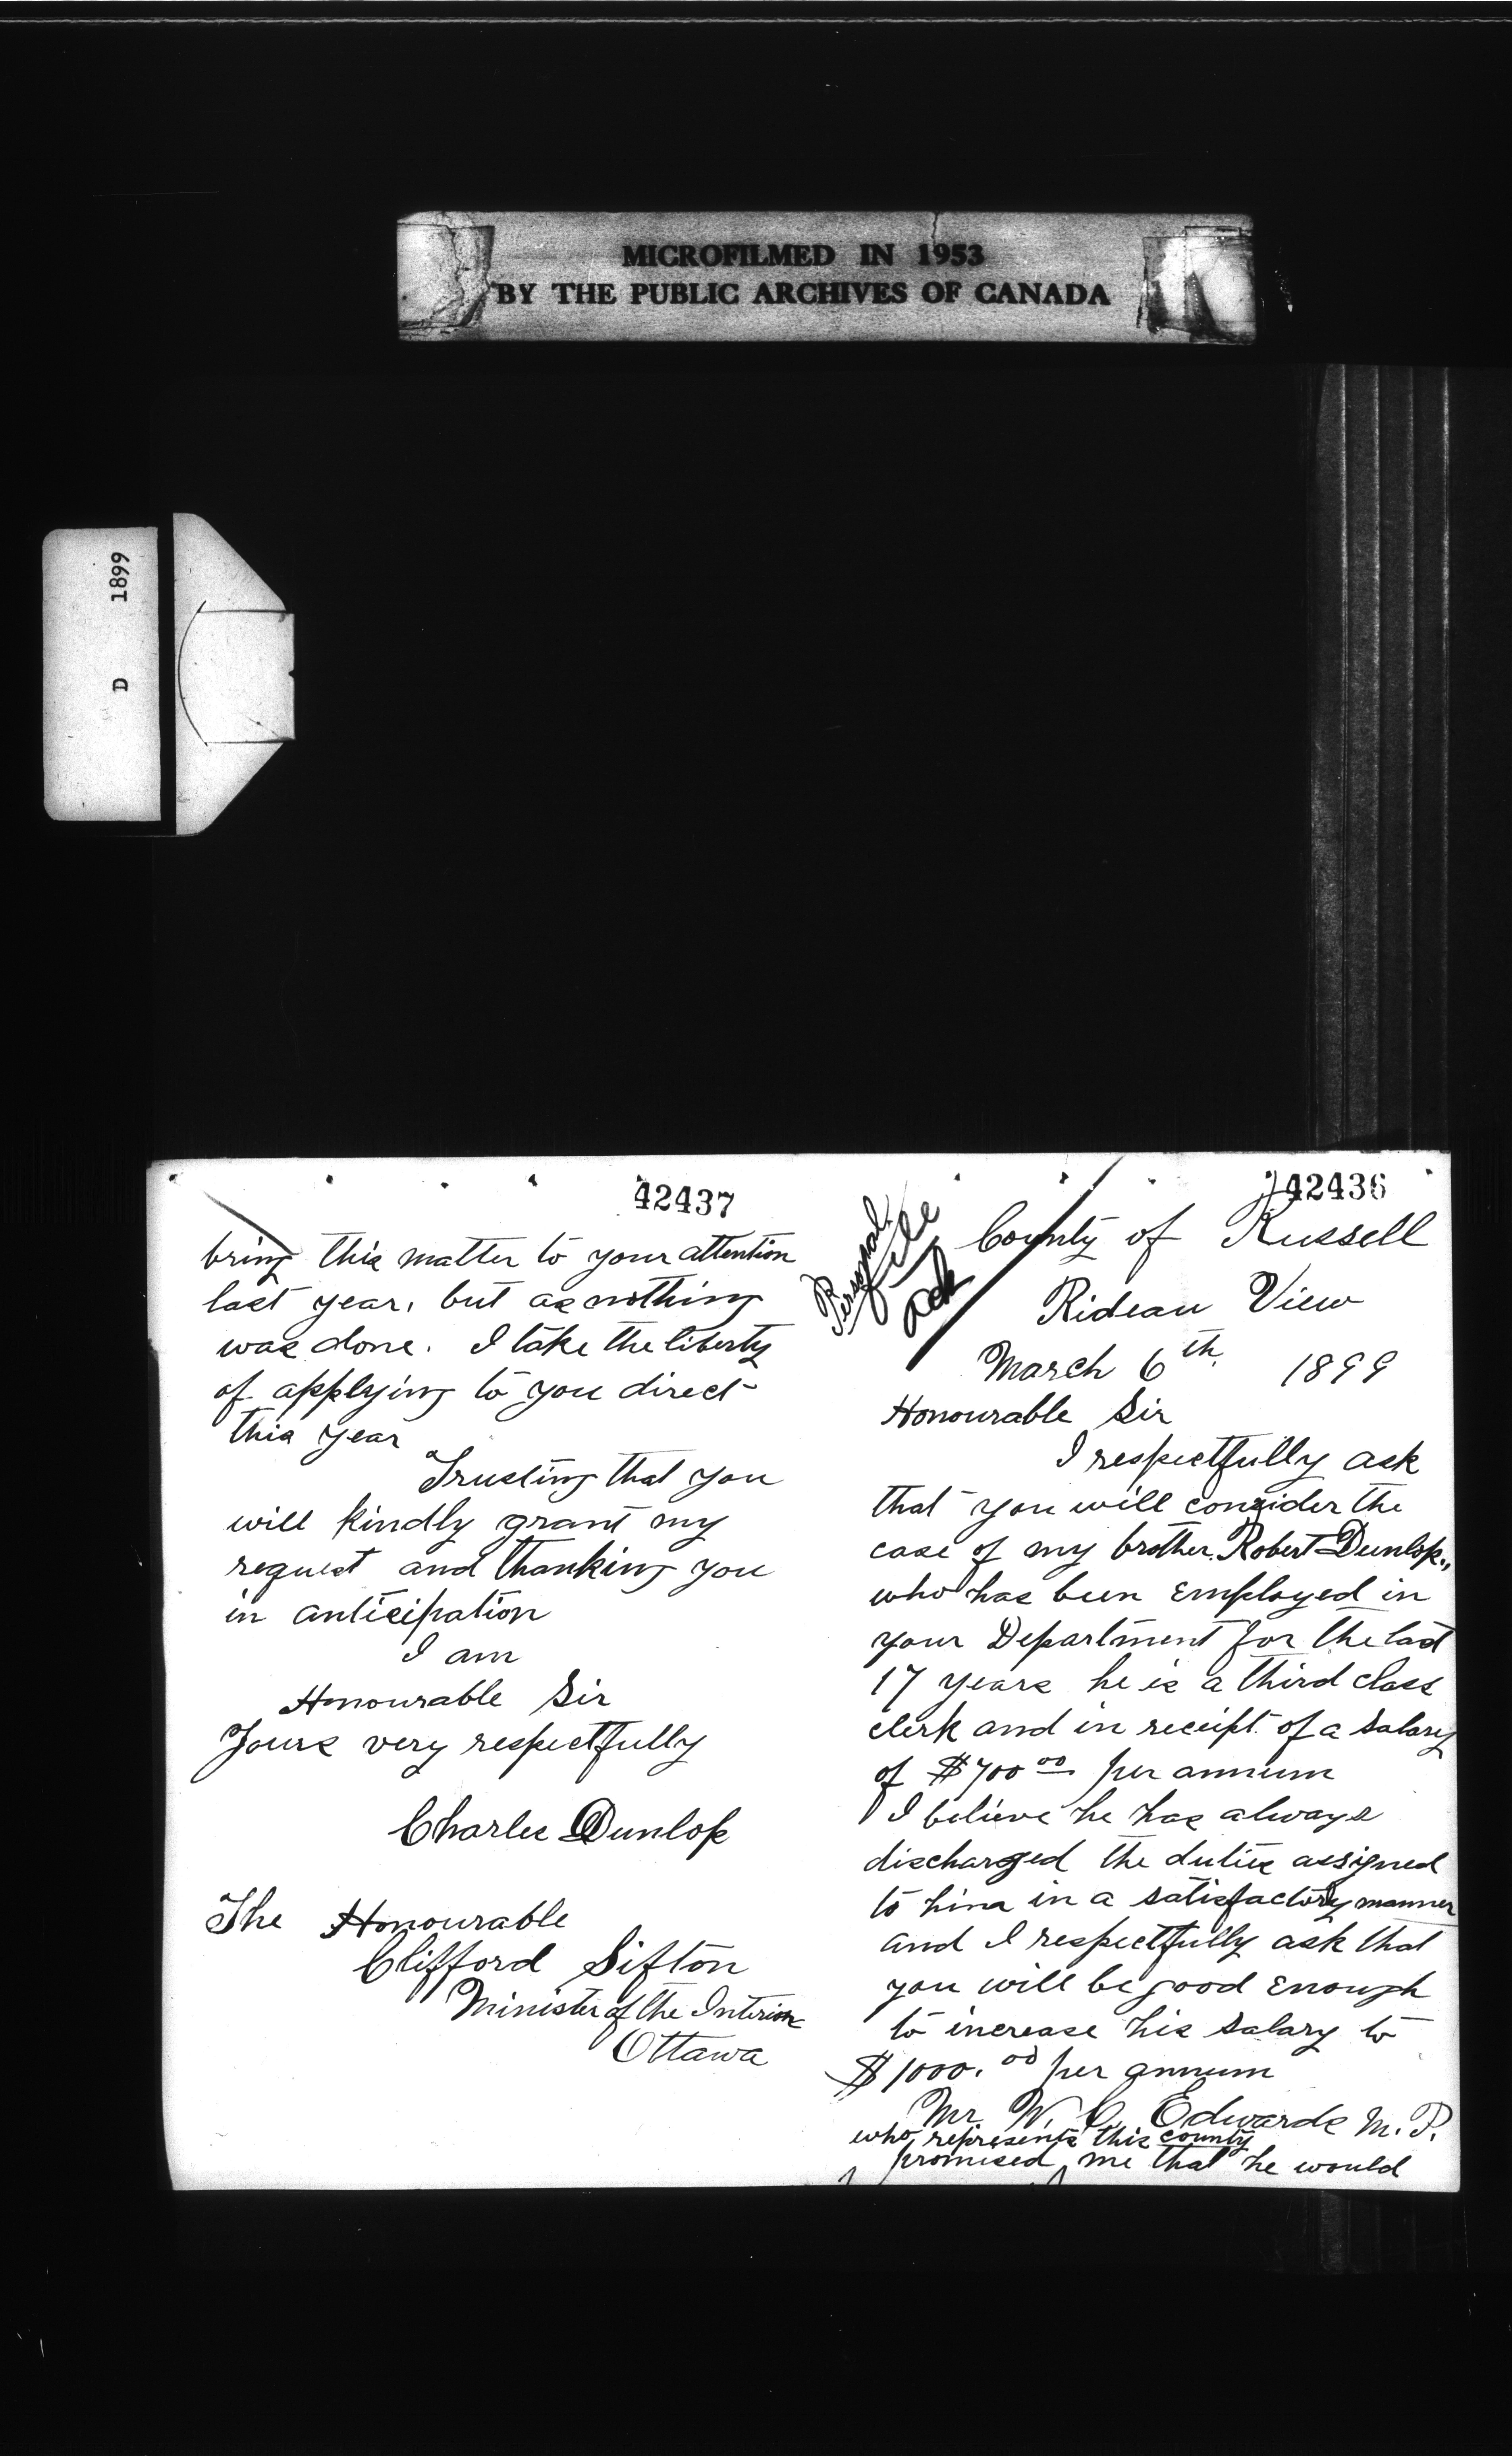 MICROFILMED IN 1953
BY THE PUBLIC ARCHIVES OF CANADA
D 1899
42436
Personal
File
Ack
County of Russell
Rideau View
March 6th 1899
Honourable Sir
I respectfully ask
that you will consider the
case of my brother Robert Dunlop,
who has been employed in
your Department for the last
17 years he is a third class
clerk and in receipt of a salary
of $700 00 per annum
I believe he has always
discharged the duties assigned
to him in a satisfactory manner
and I respectfully ask that
you will be good enough
to increase his salary to
$1000. 00 per annum
Mr. W. C. Edwards M. P.
who represents this county
promised me that he would
42437
bring this matter to your attention
last year, but as nothing
was done. I take the liberty
of applying to you direct
this year
Trusting that you
will kindly grant my
request and thanking you
in anticipation
I am
Honourable Sir
Yours very respectfully
Charles Dunlop
The Honourable
Clifford Sifton
Minister of the Interior
Ottawa